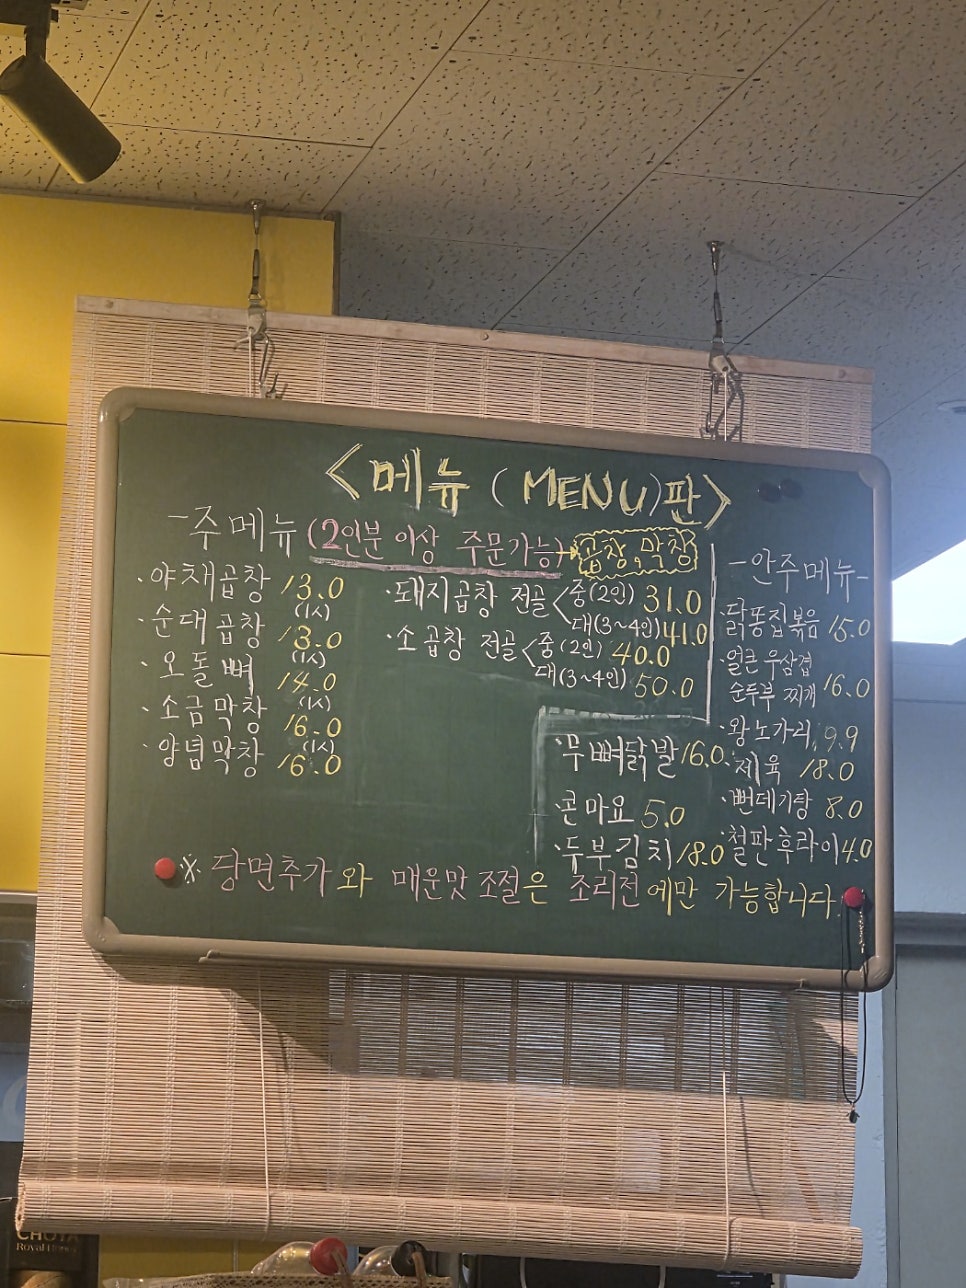 <메뉴 (MENU)판>
-주메뉴 (2인분 이상 주문가능)→곱창,막창
·야채곱창 13.0
(1人)
·순대곱창 13.0
(1人)
·오돌뼈 14.0
(1人)
·소금막창 16.0
(1人)
·양념막창 16.0
·돼지곱창 전골<중(2인) 31.0
대(3~4인) 41.0
·소곱창 전골<중(2인) 40.0
대(3~4인) 50.0
·무뼈닭발 16.0
·콘마요 5.0
·두부김치 18.0
-안주메뉴-
·닭똥집볶음 15.0
·얼큰우삼겹
순두부 찌개 16.0
·왕노가리 9.9
·제육 18.0
·뻔데기탕 8.0
·철판후라이 4.0
※ 당면추가 와 매운맛 조절은 조리전 에만 가능합니다.
CHOYA
Royal Honey